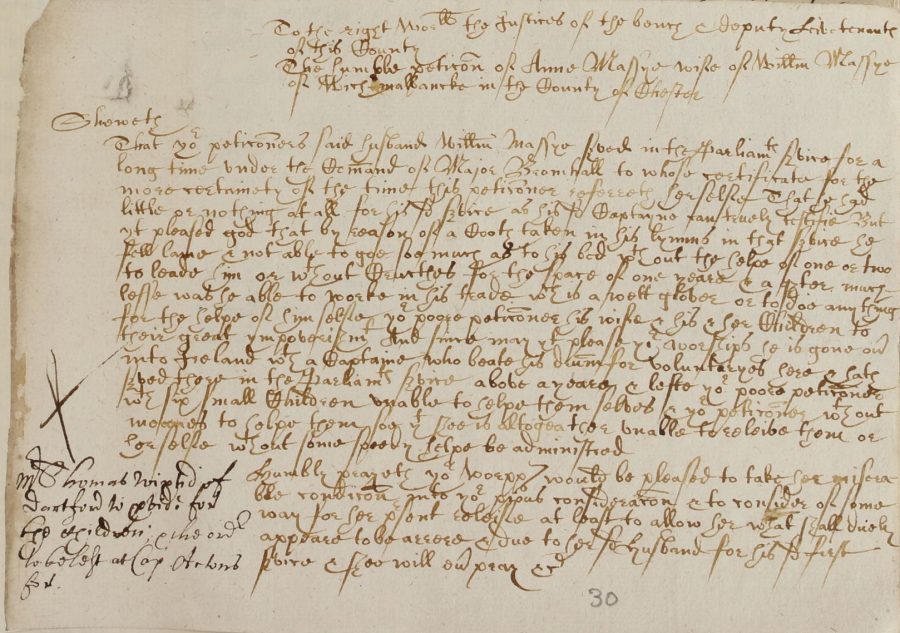 To the right Wor:lls the Justices of the bench & deputy Leivetenants
of this County
The humble peticõn of Anne Massye wife of Willm Massye
of Wich malbancke in the County of Chester
Sheweth
That yor peticõners said husband Willm Massye served in the Parliamts service for a
long time under the Cõmand of Major Bromhall to whose certificate for the
more certeinety of the time this peticõner referreth herselfe That he had
little or nothing at all for his sd service as his sd Captyne can truely testifie But
yt pleased god that by reason of a Could taken in his lymms in that service he
fell lame & not able to goe soe much as to his bed wthout the helpe of one or two
to leade him or wthout Crutches for the space of one yeare & a qter much
lesse was he able to worke in his trade wch is a wett glover or to doe any thing
for the helpe of himselfe yor poore peticõner his wife & his & her Children to
their great impoverishmt And since may yt please yor worships he is gone ov
into Ireland wth a Captaine who beate his drum for voluntaryes here & hath
served there in the Parliamts service above a yeare & lefte yor poore peticõner
wth six small Children unable to helpe them selves & yor peticõner wthout
monnes to helpe them soe yt shee is altogeather unable to releive them or
herselfe wthout some speedy helpe be administred
Humbly prayeth yor worpps would be pleased to take her misera
ble condicõn into yor pious consideracõn & to consider of some
way for her present releife at least to allow her what shall duely
appeare to be arrere & due to her sd husband for his sd first
service & shee will ev pray &c
Mr Thomas of
for
the children; & the ordr
to be left at Cap Actons
for.
30